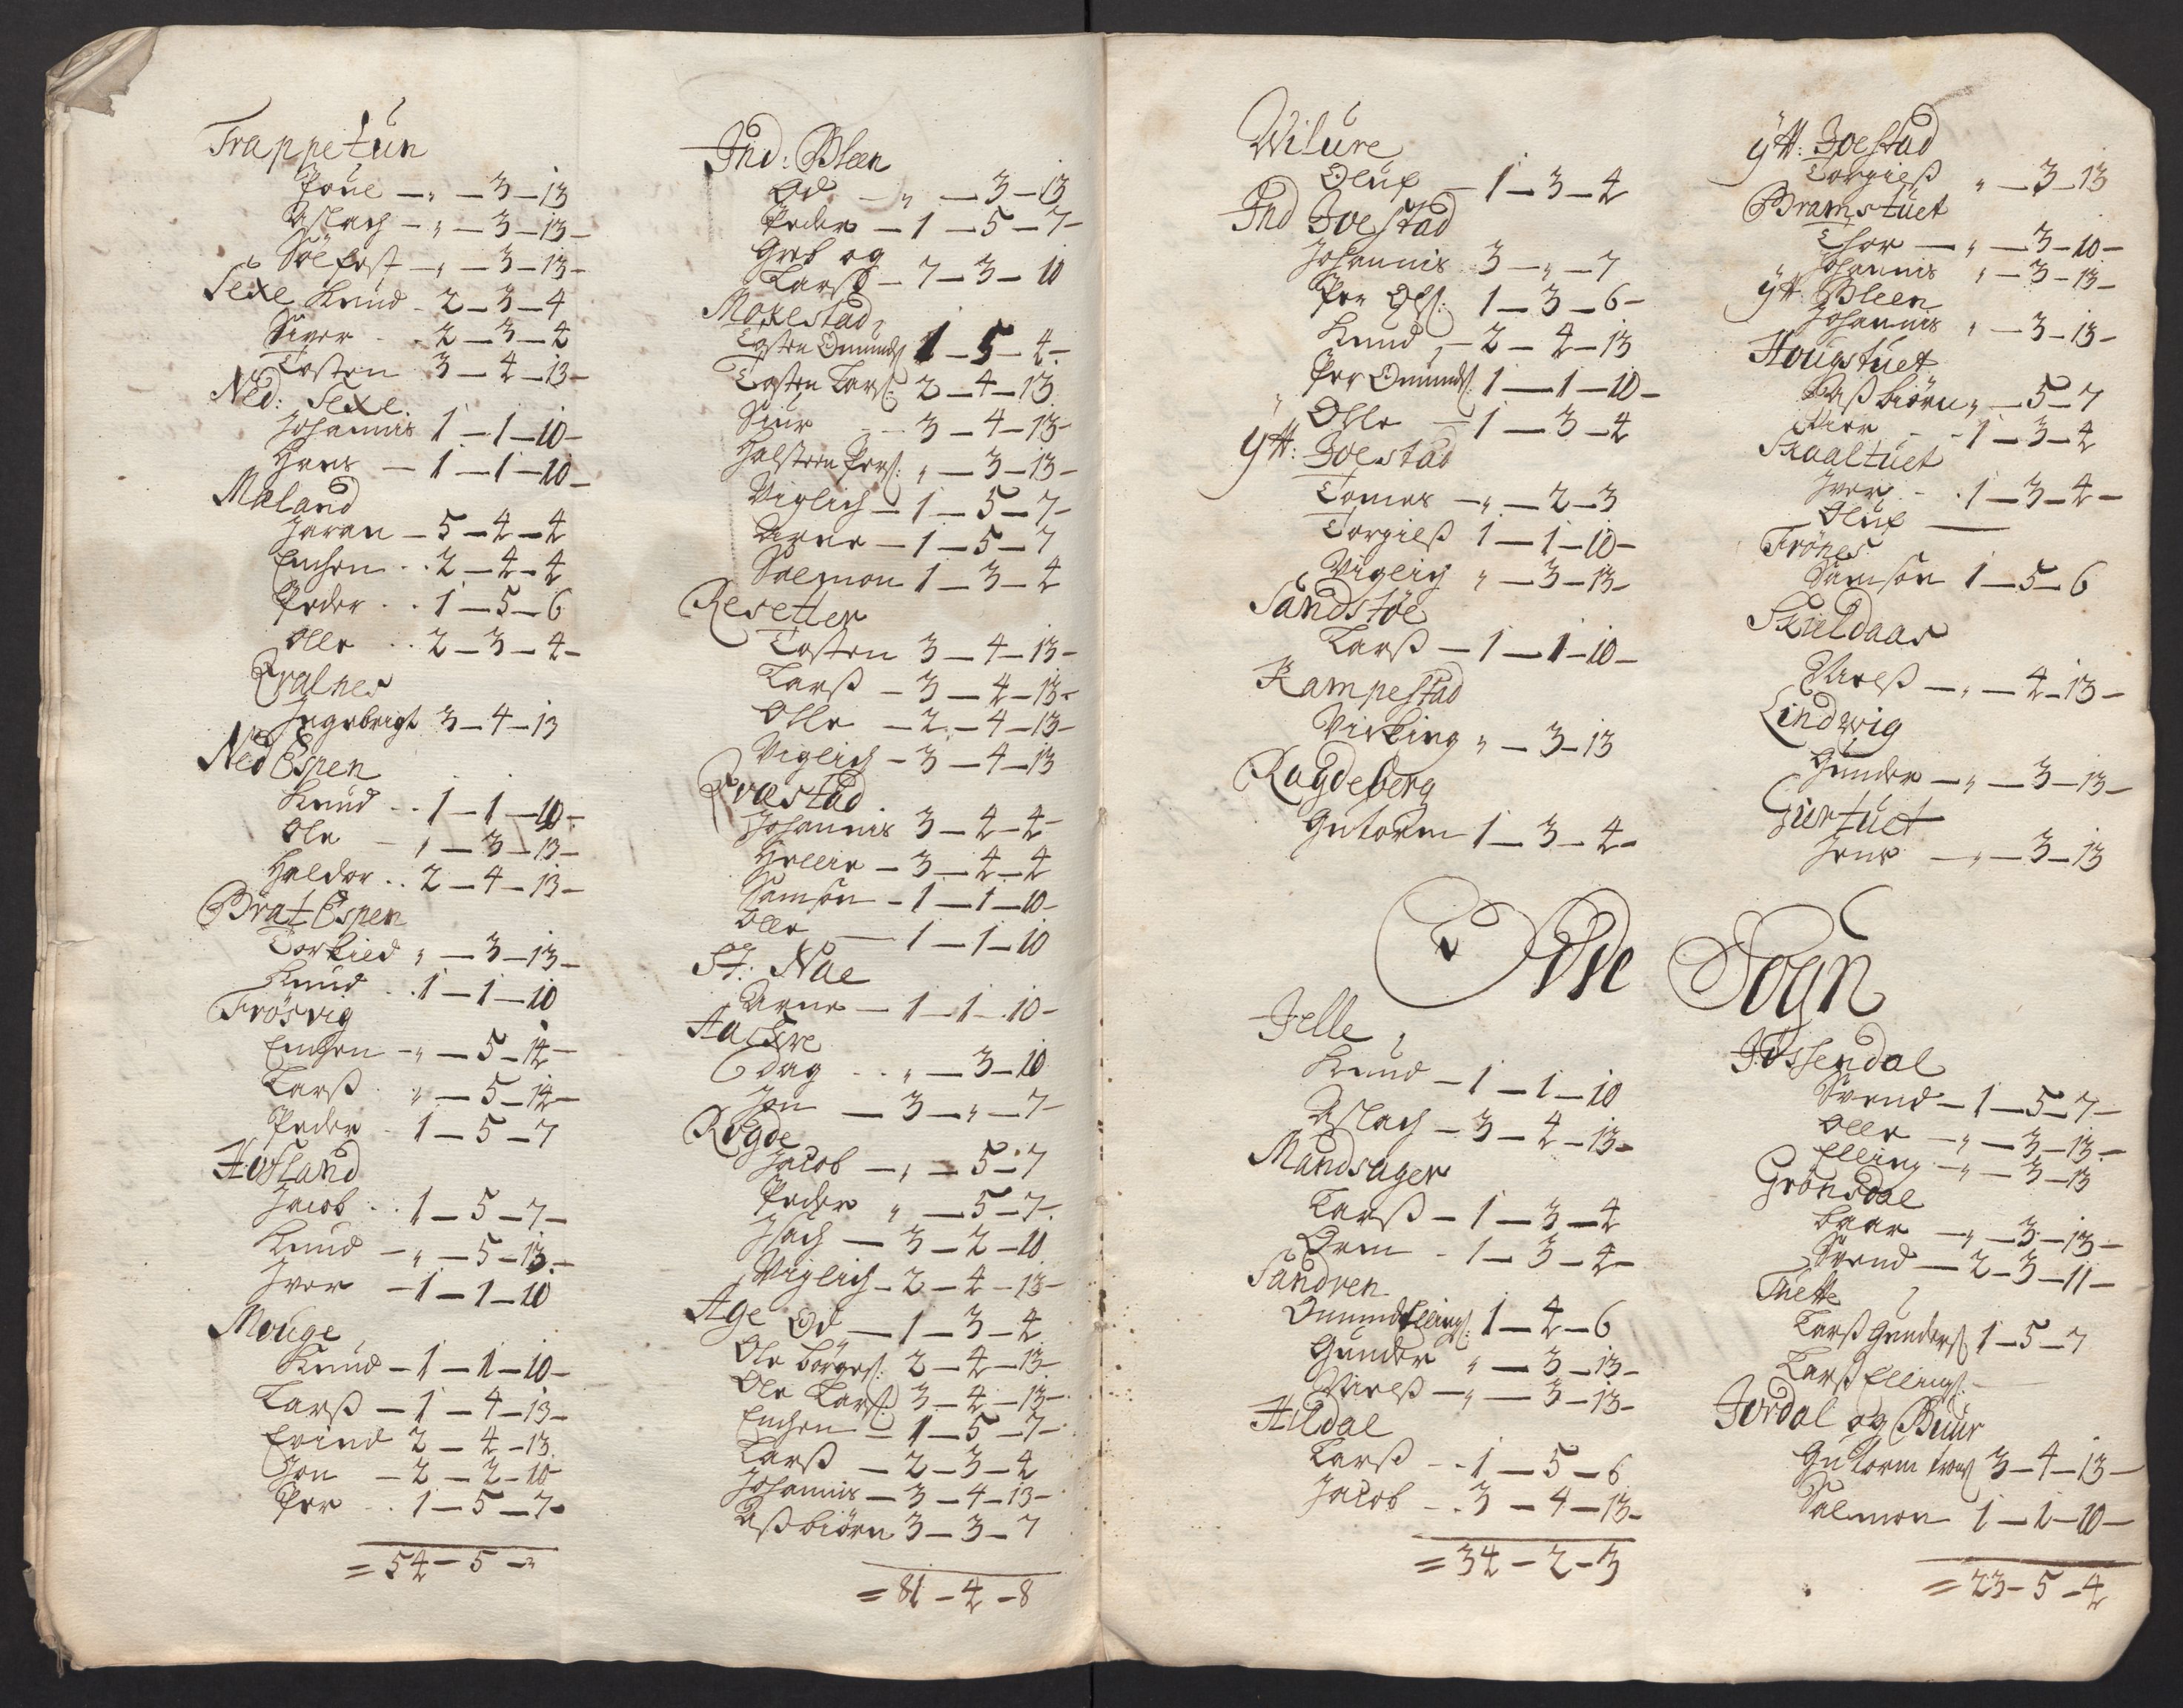 Trappetun
Poul — " — 3 — 13
Aslach — " — 3 — 13 —
Sölfest — " — 3 — 13 —
Sexe Knud . 2 — 3 — 4
Siver . . 2 — 3 — 4
Tosten 3 — 4 — 13 —
Ned: Sexe.
Johannis 1 — 1 — 10 —
Hans — 1 — 1 — 10 —
Maland
Joran — 5 — 4 — 4
Enchen . . 2 — 4 — 4
Peder . . 1 — 5 — 6
Olle . . 2 — 3 — 4 —
Qvalnes
Ingebrigt 3 — 4 — 13
Ned Espen
Knud . . 1 — 1 — 10 —
Ole — 1 — 3 — 13 —
Haldor . . 2 — 4 — 13 —
Brat Espen
Torkild " — 3 — 13 —
Knud . . 1 — 1 — 10
Frösvig
Enchen — " — 5 — 14 —
Larß " — 5 — 14 —
Peder . 1 — 5 — 7
Hofland
Jacob . . 1 — 5 — 7 —
Knud — " — 5 — 13 —
Iver — 1 — 1 — 10
Mouge
Knud — 1 — 1 — 10 —
Larß — 1 — 4 — 13 —
Erind 2 — 4 — 13
Jon — 2 — 2 — 10
Per . . 1 — 5 — 7 —
= 54 — 5 — "
Ind: Bleen
Od — " — 3 — 13
Peder — 1 — 5 — 7 —
Greb og
Larß — 7 — 3 — 10
Moxestad
Tosten Omunds: 1 — 5 — 4 —
Tosten Lars: 2 — 4 — 13
Siur — 3 — 4 — 13 —
Halsten Pers: " — 3 — 13 —
Viglich — 1 — 5 — 7 —
Arne — 1 — 5 — 7
Salmon 1 — 3 — 4
Resetter
Tosten 3 — 4 — 13 —
Larß — 3 — 4 — 13 —
Olle — 2 — 4 — 13 —
Viglich — 3 — 4 — 13
Qvæstad
Johannis 3 — 4 — 4 —
Hellie — 3 — 4 — 4
Samson — 1 — 1 — 10 —
Olle — 1 — 1 — 10
St: Nae
Arne — 1 — 1 — 10 —
Hachre
Dag . . " — 3 — 10
Jon — 3 — " — 7 —
Rogde
Jacob — " — 5 — 7
Peder " — 5 — 7 —
Isach — 3 — 2 — 10
Viglich — 2 — 4 — 13 —
Age Od — 1 — 3 — 4
Ole Börges: 2 — 4 — 13 —
Ole Lars: 3 — 4 — 13 —
Enchen — 1 — 5 — 7 —
Larß — 2 — 3 — 4
Johannis — 3 — 4 — 13 —
Aßbiörn 3 — 3 — 7
= 81 — 4 — 8
Vilure
Oluf — 1 — 3 — 4
Ind Joestad
Johannis 3 — " — 7
Per Ols: 1 — 3 — 6 —
Knud — 2 — 4 — 13
Per Omunds: 1 — 1 — 10 —
Olle — 1 — 3 — 4
ytt: Joestad
Tomes — " — 2 — 3
Torgielß 1 — 1 — 10 —
Viglich " — 3 — 13 —
Sandstöe
Larß — 1 — 1 — 10 —
Kampestad
Virking " — 3 — 13
Ragdeberg
Gutorm 1 — 3 — 4 —
ytt: Joestad
Torgielß " — 3 — 13
Bramstuet
Thor — " — 3 — 10 —
Johannis " — 3 — 13 —
ytt: Bleen
Johannis " — 3 — 13 —
Hougstuet
Aßbiörn " — 5 — 7
Peder — 1 — 3 — 4
Skaaltuet
Iver . . 1 — 3 — 4 —
Oluf —
Frönes
Samson 1 — 5 — 6
Skieldaas
Nielß — " — 4 — 13 —
Lindwig
Gunder — " — 3 — 13 —
Giurtuet
Jens — " — 3 — 13
Odde Sogn
Jelle
Knud — 1 — 1 — 10
Aslach — 3 — 4 — 13 —
Mandsager
Larß — 1 — 3 — 4
Orm . 1 — 3 — 4 —
Sandven
Omund Ellings: 1 — 4 — 6
Gunder " — 3 — 13 —
Nielß — " — 3 — 13 —
Hildal
Larß . . 1 — 5 — 6
Jacob . . 3 — 4 — 13 —
= 34 — 2 — 3
Jössendal
Svend — 1 — 5 — 7 —
Olle — " — 3 — 13 —
Elling — " — 3 — 13
Grönsdal
Baar — " — 3 — 13 —
Svend — 2 — 3 — 11 —
Tiette
Larß Gunders: 1 — 5 — 7
Larß Ellings: —
Jordal og Buur
Gutorm 3 — 4 — 13 —
Salmon 1 — 1 — 10 —
= 23 — 5 — 4